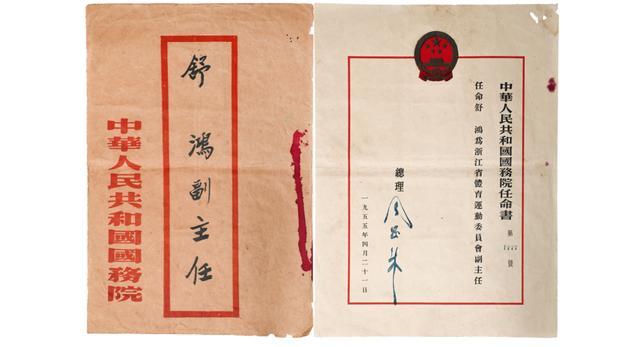 舒鴻副主任
中華人民共和國國務院
中華人民共和國國務院任命書
第 號
任命舒鴻爲浙江省體育運動委員會副主任
總理
周恩来
一九五五年四月二十一日